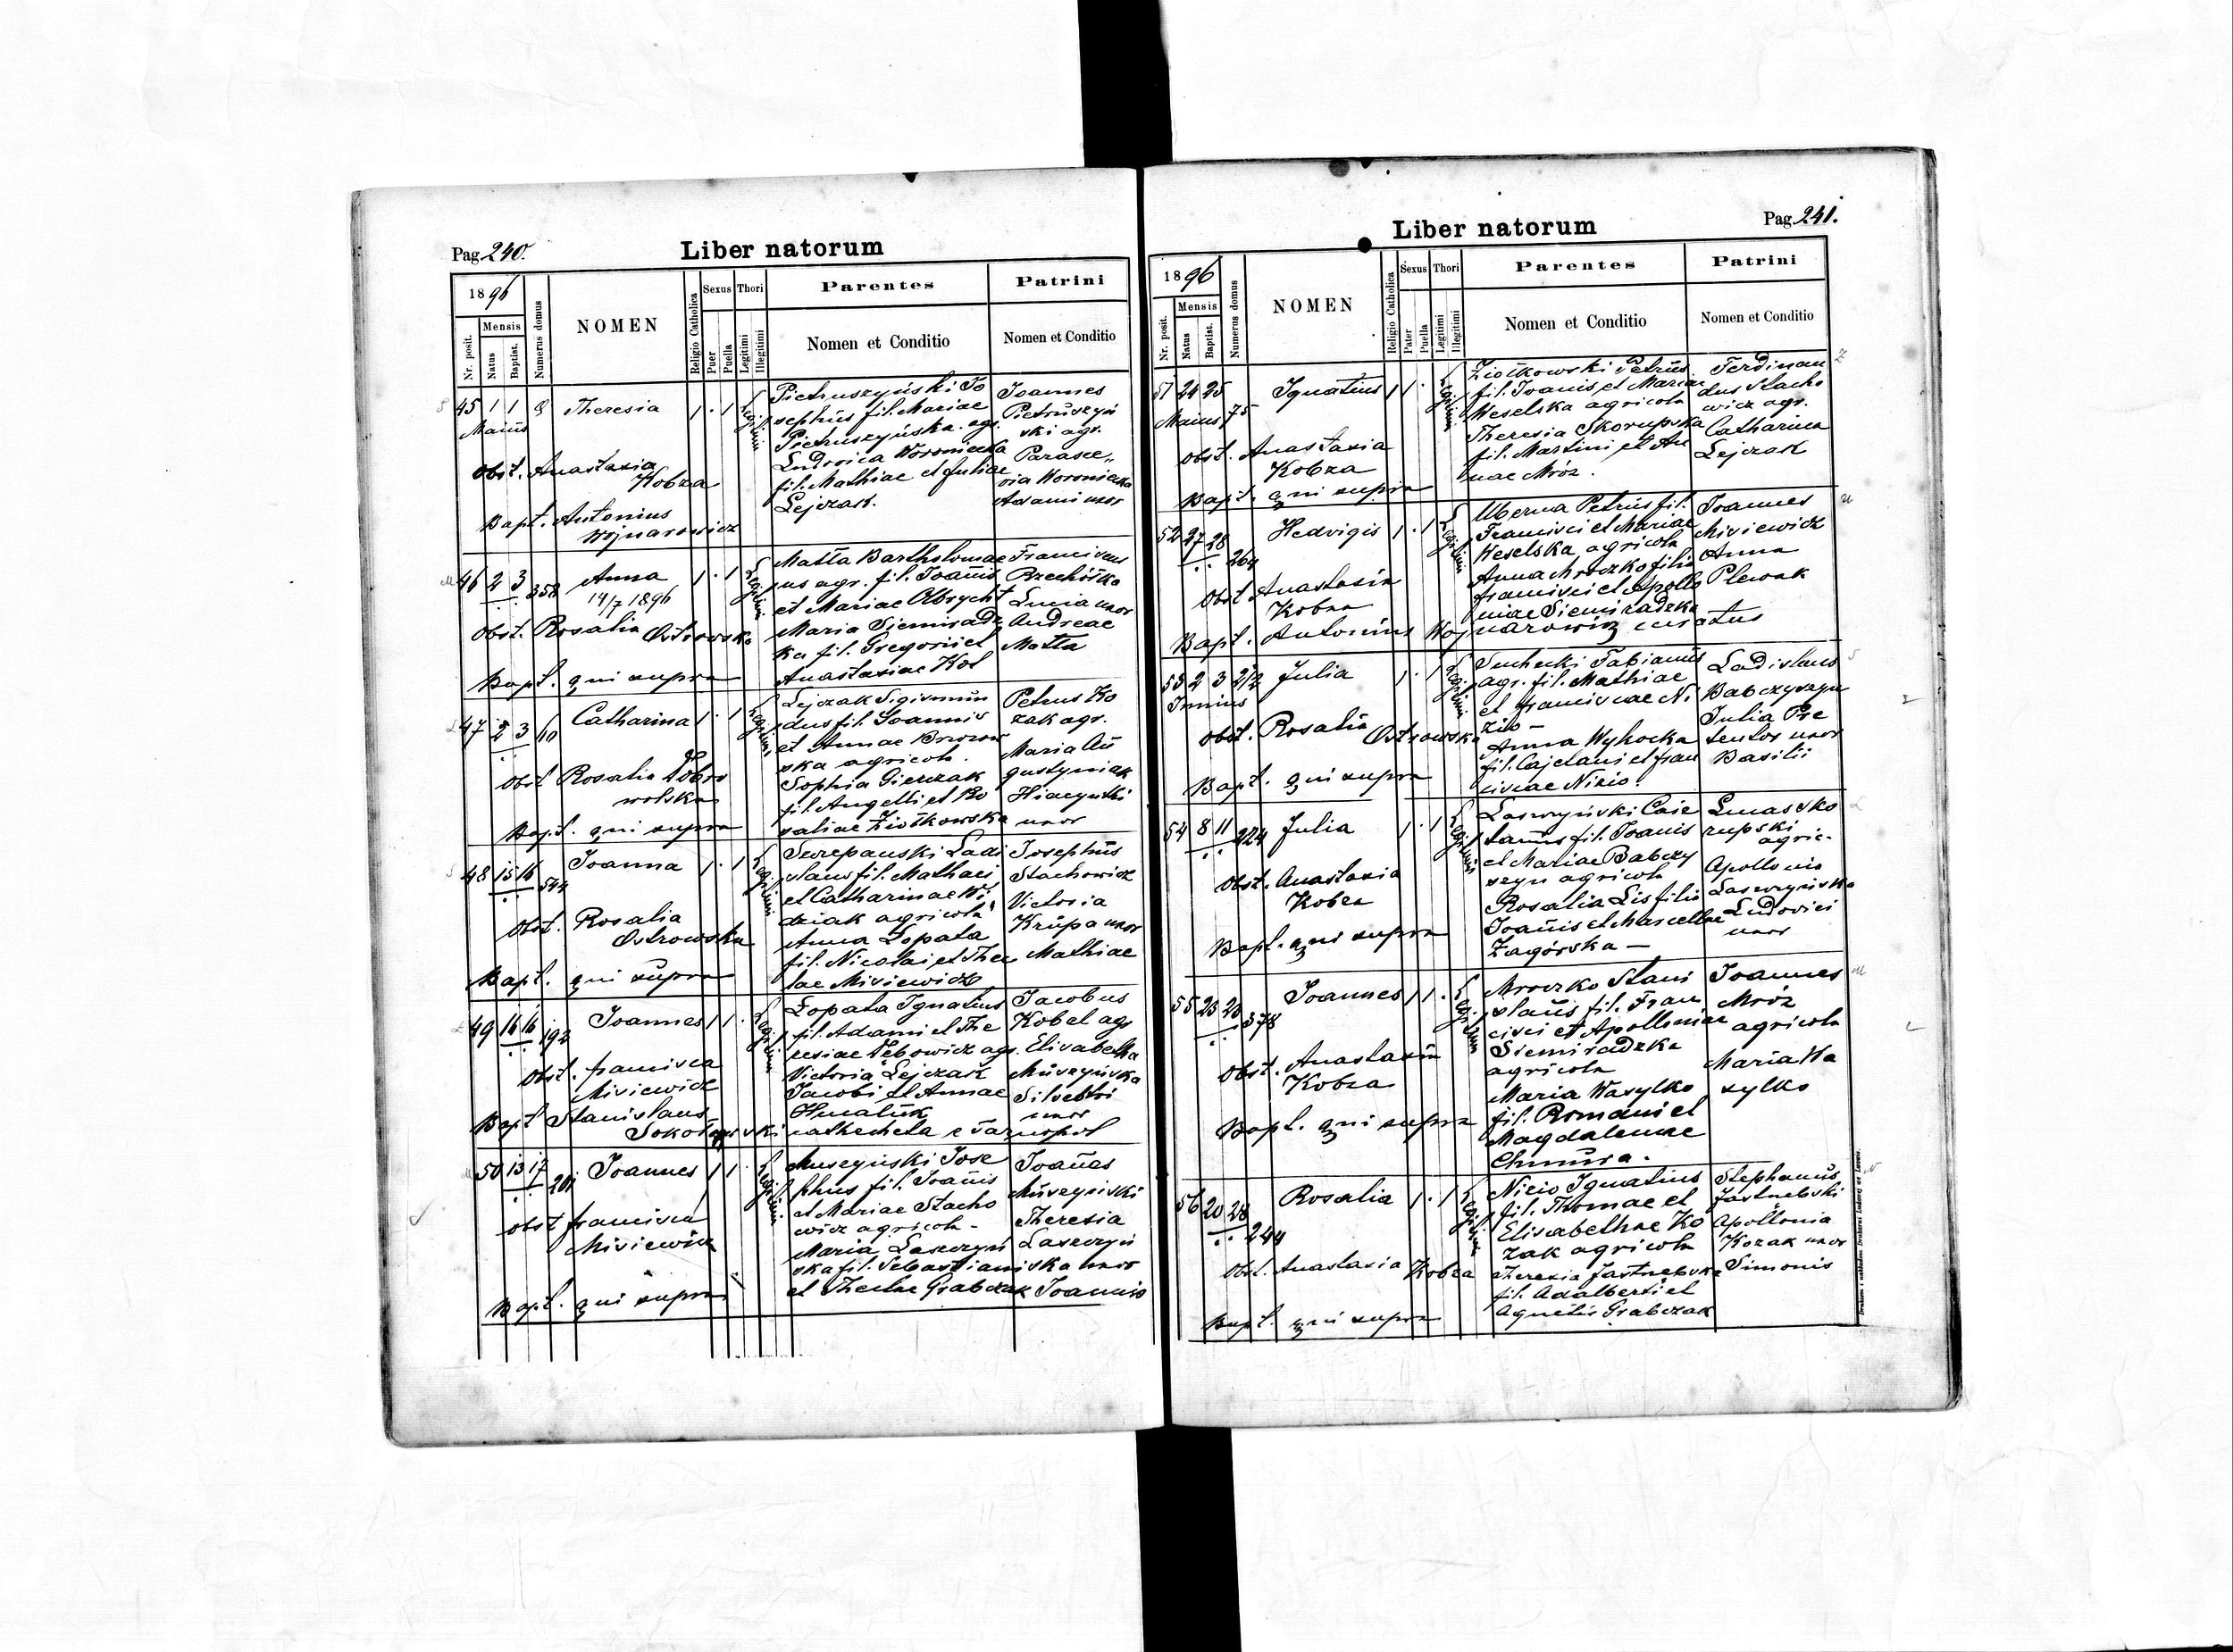 Pag. 240.
Liber natorum
1896
Nr. posit.
Mensis
Natus
Baptist.
Numerus domus
NOMEN
Religio Catholica
Sexus
Puer
Puella
Thori
Legitimi
Illegitimi
Parentes
Nomen et Conditio
Patrini
Nomen et Conditio
45 1 1 8 Theresia 1 . 1 Legitimi
Maius
Obst. Anastasia
Kobza
Bapt. Antonius
Wojnarowicz
Pietruszyński Jo
sephus fil. Mariae
Pietruszyńska agr.
Ludovica Woroniecka
fil. Mathiae et Juliae
Lejczak.
Joannes
Pietruszyń
ski agr.
Parasce„
via Woroniecka
Adami uxor
46 2 3 358 Anna 1 . 1 Legitimi
14/7 1896
Obst. Rosalia Ostrowska
Bapt. qui supra
Matła Bartholomae
us agr. fil. Joannis
et Mariae Olbrycht
Maria Siemiradz
ka fil. Gregorii et
Anastasiae Kot
Franciscus
Rzechótka
Lucia uxor
Andreae
Matła
47 2 3 60 Catharina 1 . 1 Legitimi
Obst Rosalia Dobro
wolska
Bapt. qui supra
Lejczak Sigismun
dus fil. Joannis
et Annae Brzozow
ska agricola.
Sophia Gierczak
fil. Angelli et Ro
saliae Ziółkowska
Petrus Ko
zak agr.
Maria Au
gustyniak
Hiacynthi
uxor
48 15 16 544 Joanna 1 . 1 Legitimi
Obst. Rosalia
Ostrowska
Bapt. qui supra
Szczepanski Ladi
slaus fil. Mathaei
et Catharinae Wi
dziak agricola
Anna Łopata
fil. Nicolai et The
lae Misiewicz
Josephus
Stachowicz
Victoria
Krupa uxor
Mathiae
49 16 16 192 Joannes 1 1 . Legitimi
Obst. Francisca
Misiewicz
Bapt Stanislaus
Łopata Ignatius
fil. Adami et The
resiae Dębowicz agr.
Victoria Lejczak
Jacobi et Annae
Hnatiuk
catecheta e Tarnopol
Jacobus
Kobel agr
Elisabetha
Muszyńska
Silvestri
uxor
50 13 17 201 Joannes 1 1 . Legitimi
Obst Francisca
Misiewicz
Bapt. qui supra
Muszyński Jose
phus fil. Joannis
et Mariae Stacho
wicz agricola -
Maria Laszczyń
ska fil. Sebastiani
et Theclae Grabczak
Joannes
Muszyński
Theresia
Laszczyń
ska uxor
Joannis
Pag. 241.
Liber natorum
1896
Nr. posit.
Mensis
Natus
Baptist.
Numerus domus
NOMEN
Religio Catholica
Sexus
Puer
Puella
Thori
Legitimi
Illegitimi
Parentes
Nomen et Conditio
Patrini
Nomen et Conditio
51 24 25 Ignatius 1 1 . Legitimi
Maius 75
Obst. Anastasia
Kobza
Bapt. qui supra
Ziółkowski Petrus
fil. Joanis et Mariae
Weselska agricola
Theresia Skorupska
fil. Martini et An
nae Mróz.
Ferdinan
dus Stacho
wicz agr.
Catharina
Lejczak
52 27 28 264 Hedvigis 1 . 1 Legitimi
Obst Anastasia
Kobza
Bapt. Antonius Wojnarowicz curatus
Petrus fil.
Francisci et Mariae
Weselska agricola
Anna Mroczko filia
Francisci et Apollo
niae Siemiradzka
Joannes
Misiewicz
Anna
Plewak
53 2 3 212 Julia 1 . 1 Legitimi
Junius
Obst. Rosalia Ostrowska
Bapt. qui supra
Suchecki Fabianus
agr. fil. Mathiae
et Franciscae Ni
zio -
Anna Wysocka
fil. Cajetani et Fran
ciscae Nizio.
Ladislaus
Babczyszyn
Julia Pre
tentos uxor
Basilii
54 8 11 224 Julia 1 . 1 Legitimi
Obst. Anastasia
Kobza
Bapt. qui supra
Laszczyński Caie
tanus fil. Joanis
et Mariae Babczy
szyn agricola
Rosalia Lis filia
Joanis et Marcellae
Zagórska -
Lucas Sko
rupski
agric.
Apollonia
Laszczyńska
Ludovici
uxor
55 23 23 378 Joannes 1 1 . Legitimi
Obst. Anastasia
Kobza
Bapt. qui supra
Mroczko Stani
slaus fil. Fran
cisci et Apolloniae
Siemiradzka
agricola
Maria Wasylko
fil. Romani et
Magdalenae
Chmura.
Joannes
Mróz
agricola
Maria Wa
sylko
56 20 28 244 Rosalia 1 . 1 Legitimi
Obst. Anastasia Kobza
Bapt. qui supra
Nizio Ignatius
fil. Thomae et
Elisabethae Ko
zak agricola
Theresia Jastrzebska
fil. Adalberti et
Agnetis Grabczak
Stephanus
Jastrzebski
Apollonia
Kozak uxor
Simonis